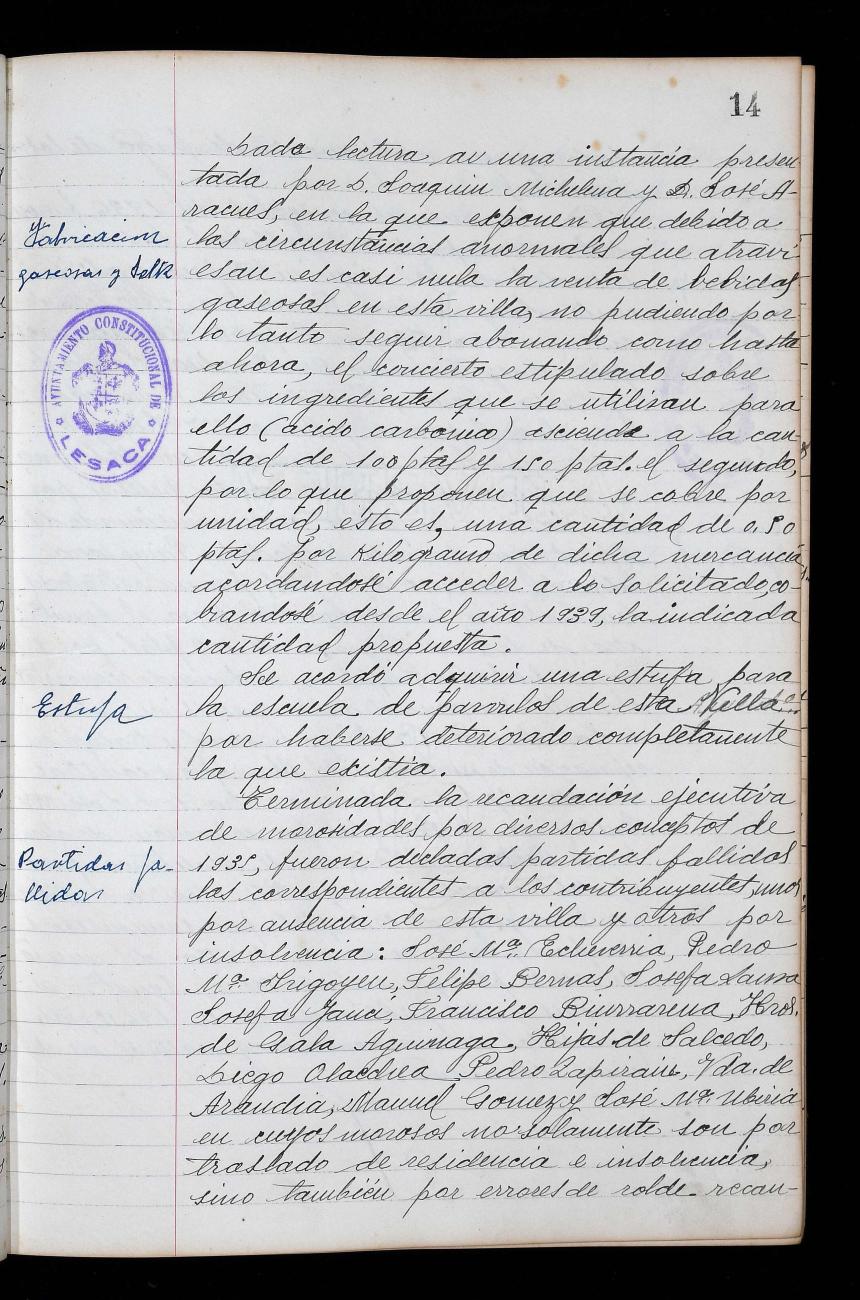 14
Dada lectura av una instancia presen-
tada por D. Joaquin Michelena y D. José A-
racues, en la que exponen que debido a
las circunstancias anormales que atravi-
esan es casi nula la venta de bebidas
gaseosas en esta villa, no pudiendo por
lo tanto seguir abonando como hasta
ahora, el concierto estipulado sobre
los ingredientes que se utilizan para
ello (acido carbonico) asciende a la can-
tidad de 100 ptas y 150 ptas. el segundo,
por lo que proponen que se cobre por
unidad, esto es, una cantidad de 0,50
ptas. por Kilogramo de dicha mercancia,
acordandosé acceder a lo solicitado, co-
brandosé desde el año 1939, la indicada
cantidad propuesta.
Se acordó adquirir una estufa para
la escuela de parvulos de esta Villa
por haberse deteriorado completamente
la que existia.
Terminada la recaudación ejecutiva
de morosidades por diversos conceptos de
1935, fueron decladas partidas fallidas
las correspondientes a los contribuyentes, unos
por ausencia de esta villa y otros por
insolvencia: José Mª. Echeverria, Pedro
Mª. Irigoyen, Felipe Bernas, Josefa
Josefa Janci, Francisco Biurrarena, Hros.
de Gala Aguinaga, Hijas de Salcedo,
Diego Olaechea Pedro Zapirain, Vda. de
Arandia, Manuel Gomez y José Mª. Ubiria
en cuyos morosos no solamente son por
traslado de residencia e insolvencia,
sino también por errores de rolde recau-
Fabricacion
gaseosas y Seltz
AYUNTAMIENTO CONSTITUCIONAL DE
LESACA
Estufa
Partidas fa-
llidas